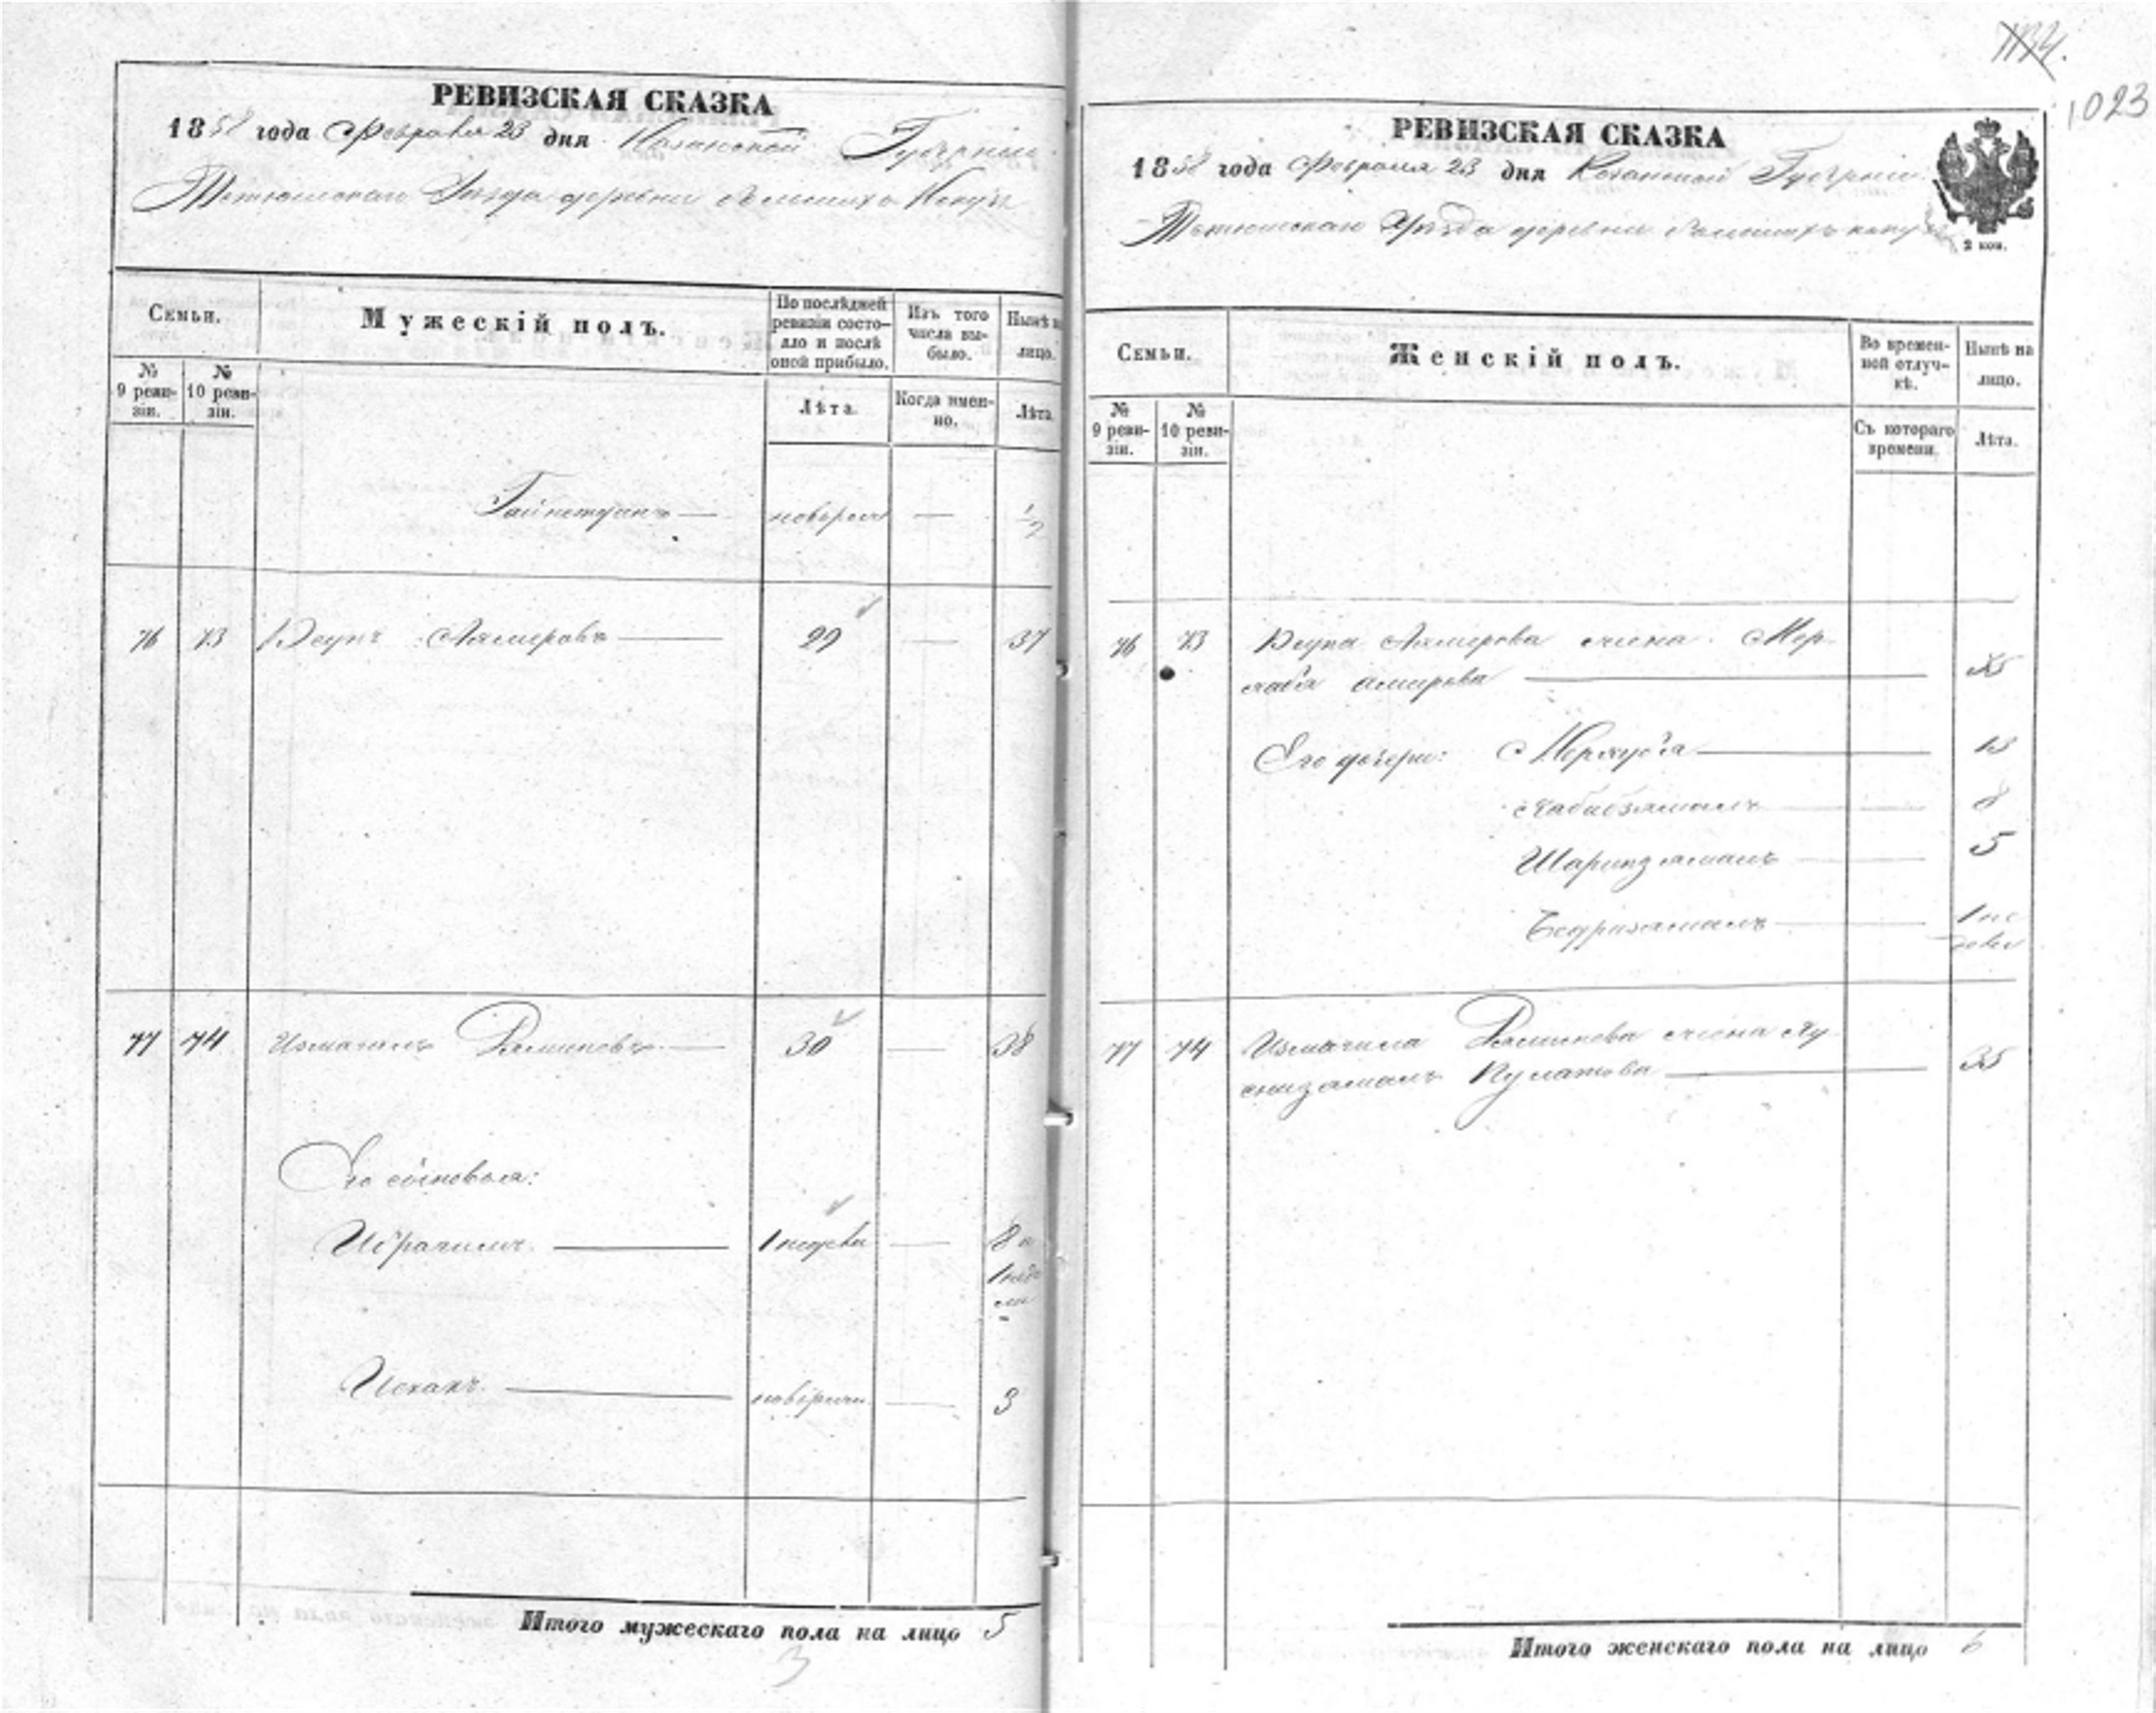 РЕВИЗСКАЯ СКАЗКА
1858 года Февраля 23 дня Казанской Губерніи
Тетюшскаго Уѣзда деревни
Семьи.
Мужескій полъ.
По послѣдней ревизіи состо-
яло и послѣ
оной прибыло.
Изъ того
числа вы-
было.
Нынѣ на
лицо.
№
9 реви-
зіи.
№
10 реви-
зіи.
Лѣта.
Когда имен-
но.
Лѣта
новорож 1/2
76 73 Аямеровъ 29 37
77 74 Измагилъ 30 38
Его сыновья:
Ибрагимъ 1 недѣли 8 и
1 недѣ
ли
Исхакъ новорожд 3
Итого мужескаго пола на лицо 5
3
1023
РЕВИЗСКАЯ СКАЗКА
1858 года Февраля 23 дня Казанской Губерніи
Тетюшскаго Уѣзда деревни
2 коп.
Семьи.
Женскій полъ.
Во времен-
ной отлуч-
кѣ.
Нынѣ на
лицо.
№
9 реви-
зіи.
№
10 реви-
зіи.
Съ котораго
времени.
Лѣта.
76 73 Аямерова жена
Амирова 35
Его дочери: 13
Хабибзямалъ 8
Шарипзямалъ 5
Бедризямалъ 1 не
дѣли
77 74 Измагила жена Ху
снизямалъ 35
Итого женскаго пола на лицо 6